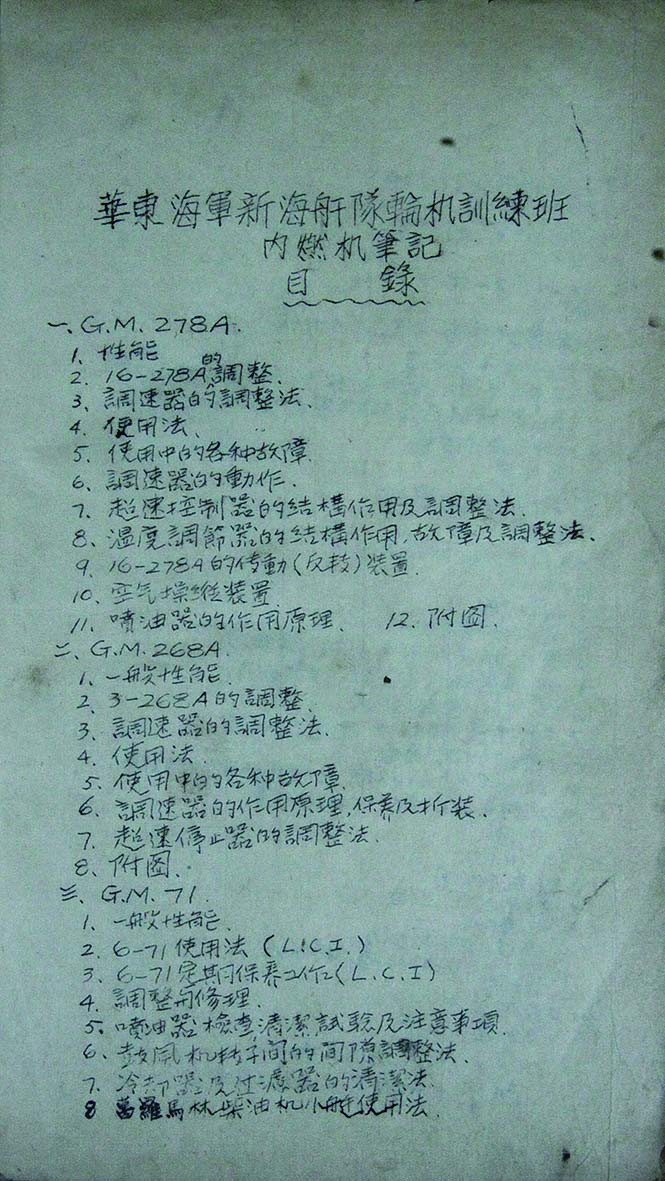 華東海軍新海軒隊輪机訓練班
内燃机筆記
目 錄
一、G.M. 278A.
1、性能
2、16-278A的調整、
3、調速器的調整法、
4、使用法、
5、使用中的各种故障
6、調速器的動作.
7、超速控制器的結構作用及調整法.
8、溫度調節器的結構作用,故障及調整法、
9、16-278A的传動(反転)装置.
10、空气操縱装置
11、噴油器的作用原理、 12、附图.
二、G.M. 268A.
1、一般性能.
2、3-268A的調整、
3、調速器的調整法.
4、使用法.
5、使用中的各种故障.
6、調速器的作用原理,保养及折装.
7、超速停止器的調整法.
8、附图.
三、G.M. 71.
1、一般性能.
2、6-71使用法(L.C.I.)
3、6-71定期保养工作(L.C.I)
4、調整与修理.
5、噴油器檢查清潔試驗及注意事項.
6、鼓風机转子间的间隙調整法.
7、冷却器及过濾器的清潔法.
8 葛羅馬林柴油机小艇使用法.